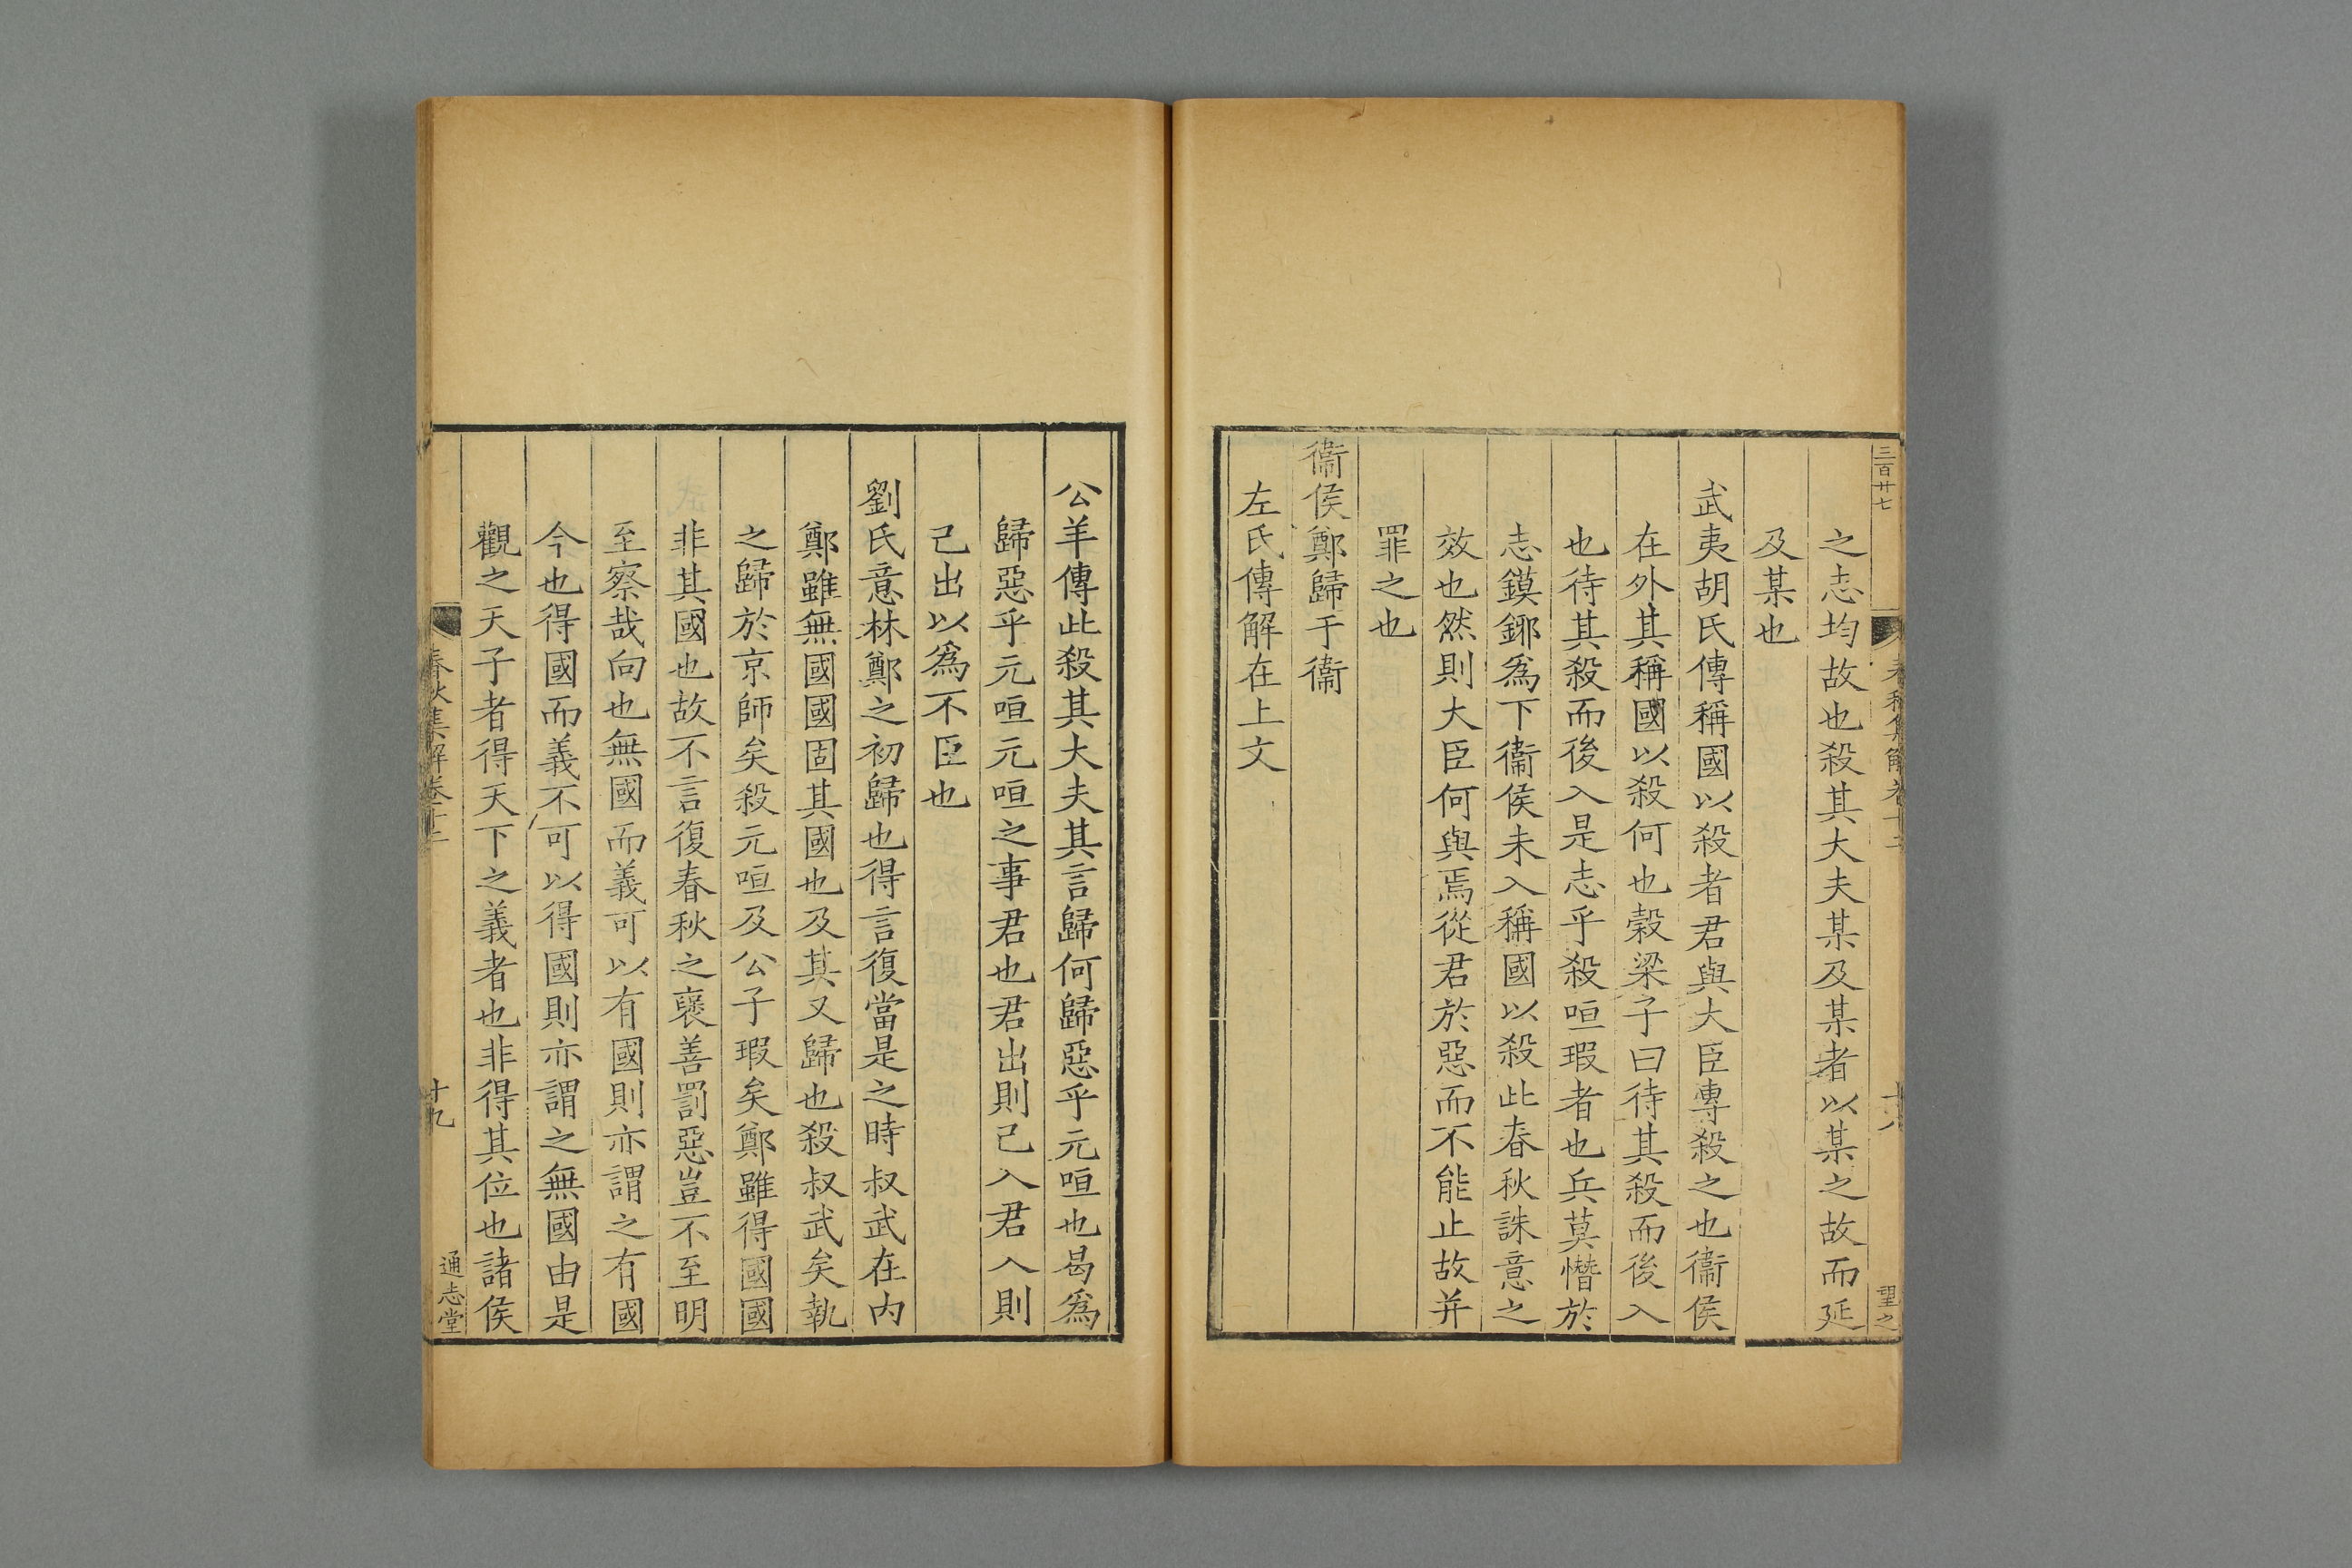 三百廿七
春秋集解卷十二
十八
望之
之志均故也殺其大夫某及某者以某之故而延
及某也
武夷胡氏傳稱國以殺者君與大臣專殺之也衞侯
在外其稱國以殺何也榖梁子曰待其殺而後入
也待其殺而後入是志乎殺咺瑕者也兵莫憯於
志鏌鋣爲下衞侯未入稱國以殺此春秋誅意之
效也然則大臣何與焉從君於惡而不能止故并
罪之也
衞侯鄭歸于衞
左氏傳解在上文
公羊傳此殺其大夫其言歸何歸惡乎元咺也曷爲
歸惡乎元咺元咺之事君也君出則己入君入則
己出以爲不臣也
劉氏意林鄭之初歸也得言復當是之時叔武在内
鄭雖無國國固其國也及其又歸也殺叔武矣執
之歸於京師矣殺元咺及公子瑕矣鄭雖得國國
非其國也故不言復春秋之襃善罰惡豈不至明
至察哉向也無國而義可以有國則亦謂之有國
今也得國而義不可以得國則亦謂之無國由是
觀之天子者得天下之義者也非得其位也諸侯
春秋集解卷十二
十九
通志堂